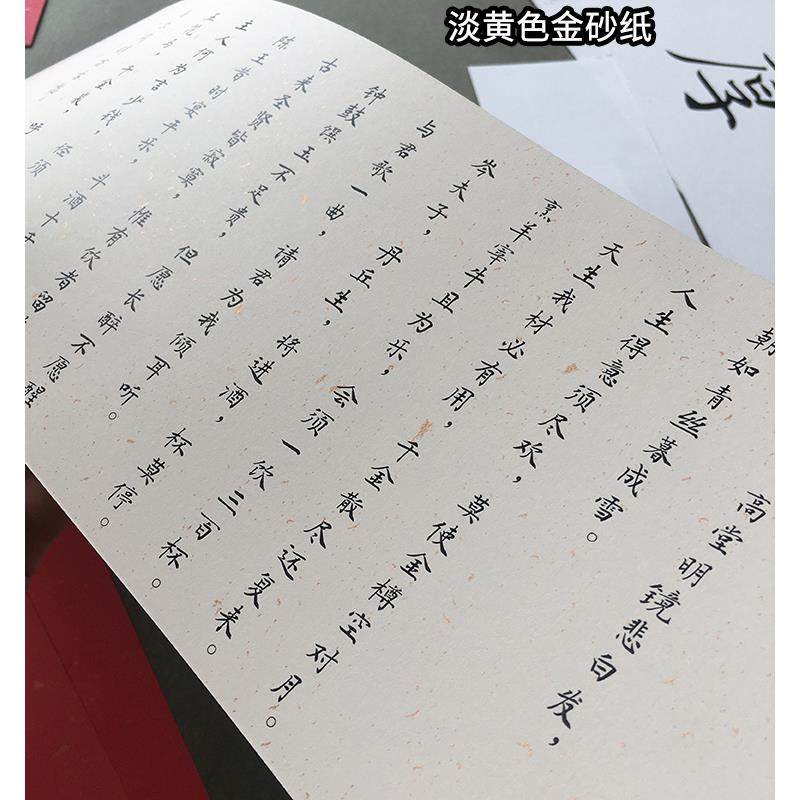 淡黄色金砂纸
淳
高堂明镜悲白发，
朝如青丝暮成雪。
人生得意须尽欢，莫使金樽空对月。
天生我材必有用，千金散尽还复来。
烹羊宰牛且为乐，会须一饮三百杯。
岑夫子，丹丘生，将进酒，杯莫停。
与君歌一曲，请君为我倾耳听。
钟鼓玉不足贵，但愿长醉不愿醒
古来圣贤皆寂寞，惟有饮者留
陈王昔时宴平乐，斗酒十千
主人何为言少钱，径须
千金裘，呼